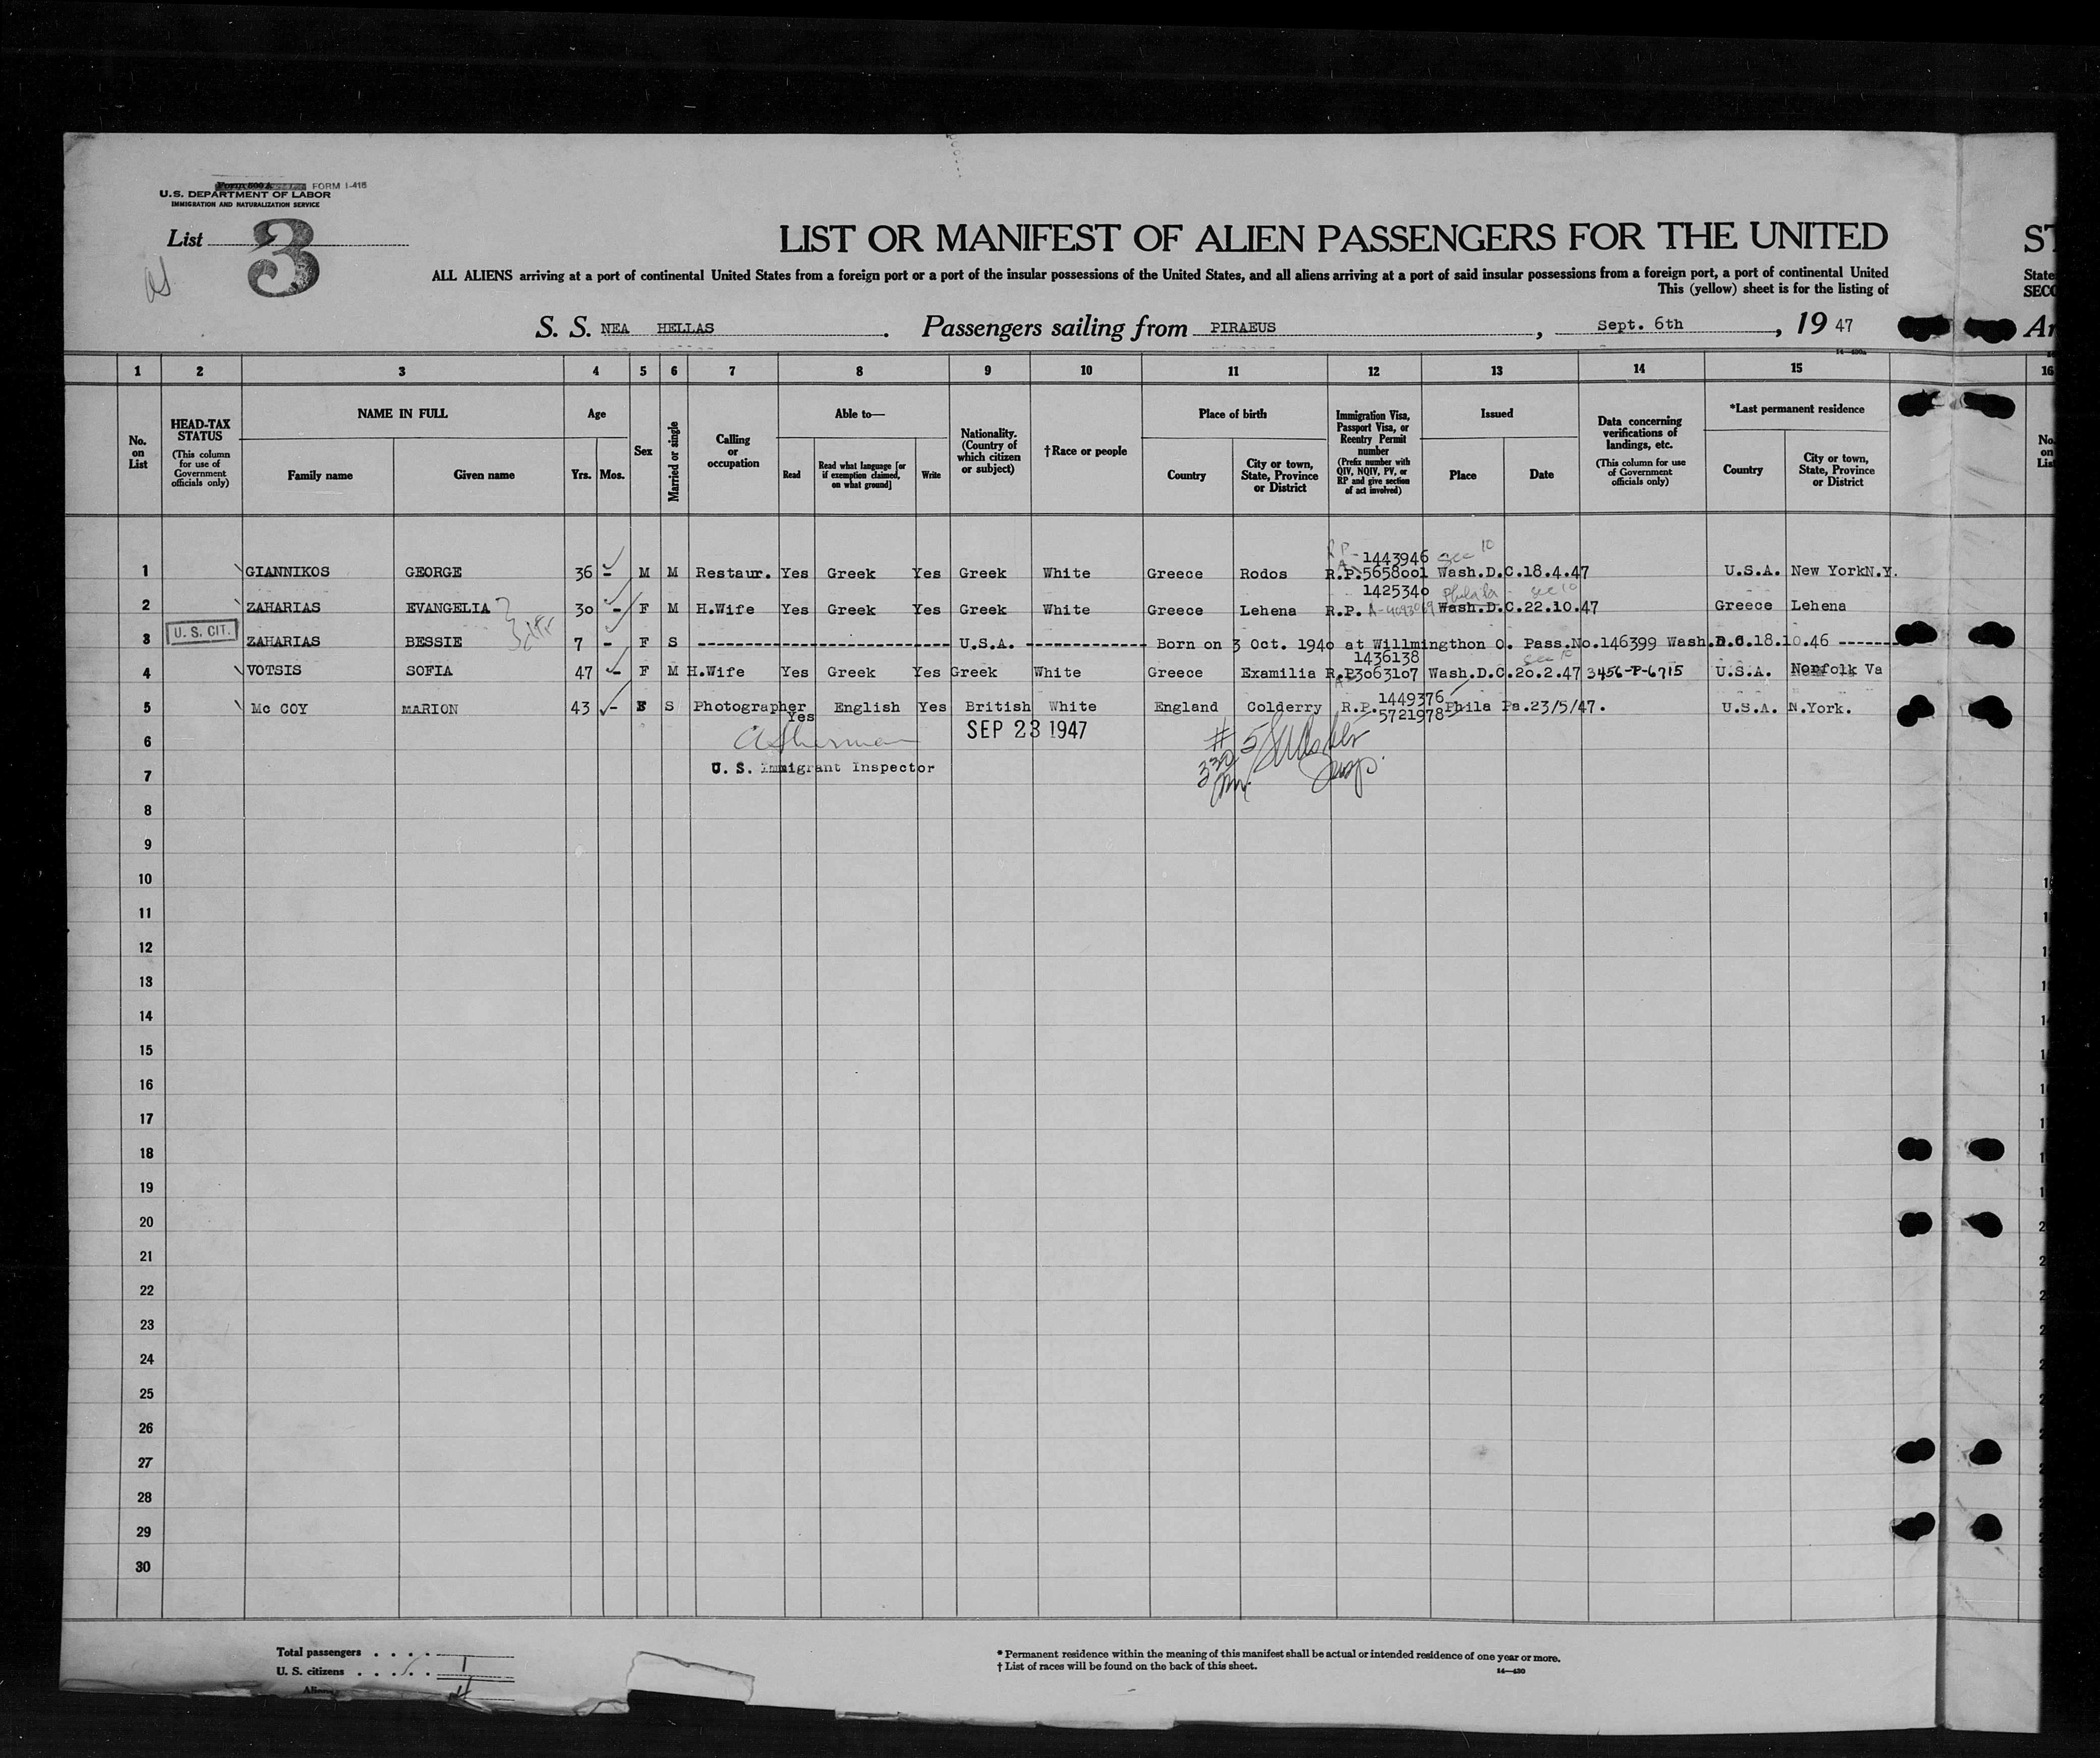 FORM I-416
U.S. DEPARTMENT OF LABOR
IMMIGRATION AND NATURALIZATION SERVICE
List 3
LIST OR MANIFEST OF ALIEN PASSENGERS FOR THE UNITED
ALL ALIENS arriving at a port of continental United States from a foreign port or a port of the insular possessions of the United States, and all aliens arriving at a port of said insular possessions from a foreign port, a port of continental United
State
This (yellow) sheet is for the listing of
SECO
S. S. NEA HELLAS . Passengers sailing from PIRAEUS , Sept. 6th , 19 47
1 2 3 4 5 6 7 8 9 10 11 12 13 14 15 16
No. on List
HEAD-TAX STATUS (This column for use of Government officials only)
NAME IN FULL
Family name Given name
Age
Yrs. Mos.
Sex
Married or single
Calling or occupation
Able to—
Read
Read what language [or if exemption claimed, on what ground]
Write
Nationality. (Country of which citizen or subject)
†Race or people
Place of birth
Country
City or town, State, Province or District
Immigration Visa, Passport Visa, or Reentry Permit number (Prefix number with QIV, NQIV, PV, or RP and give section of act involved)
Issued
Place Date
Data concerning verifications of landings, etc. (This column for use of Government officials only)
*Last permanent residence
Country
City or town, State, Province or District
RP- 1443946 sec 10
1 GIANNIKOS GEORGE 36 - M M Restaur. Yes Greek Yes Greek White Greece Rodos R.P. 5658001 Wash.D.C.18.4.47 U.S.A. New YorkN.Y.
1425340 Phila Pa sec 10
2 ZAHARIAS EVANGELIA 30 - F M H.Wife Yes Greek Yes Greek White Greece Lehena R.P. Wash.D.C.22.10.47 Greece Lehena
U. S. CIT.
3 ZAHARIAS BESSIE 7 - F S ---------- U.S.A. ---------- Born on 3 Oct. 1940 at Willmingthon O. Pass.No.146399 Wash.D.C.18.10.46 -------
1436138 sec 10
4 VOTSIS SOFIA 47 - F M H.Wife Yes Greek Yes Greek White Greece Examilia R.P.3063107 Wash.D.C.20.2.47 3456-P-6715 U.S.A. Norfolk Va
1449376
5 Mc COY MARION 43 - F S Photographer Yes English Yes British White England Colderry R.P. 5721978 Phila Pa.23/5/47. U.S.A. N.York.
6
SEP 23 1947
7
U. S. Immigrant Inspector
8
9
10
11
12
13
14
15
16
17
18
19
20
21
22
23
24
25
26
27
28
29
30
Total passengers . . . .
U. S. citizens . . . . . 1
Aliens 4
* Permanent residence within the meaning of this manifest shall be actual or intended residence of one year or more.
† List of races will be found on the back of this sheet.
14—430